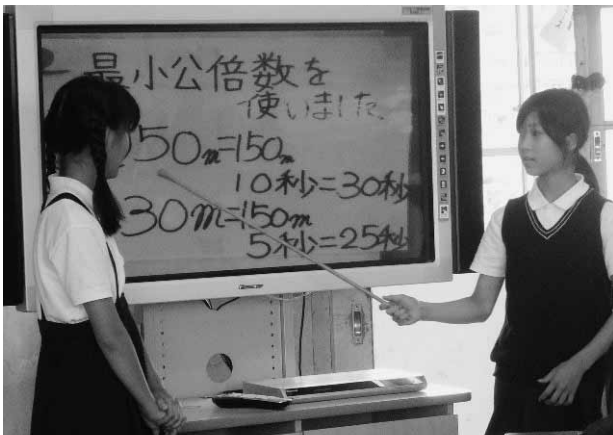 最小公倍数を
使いました
50m=150m
10秒=30秒
30m=150m
5秒=25秒